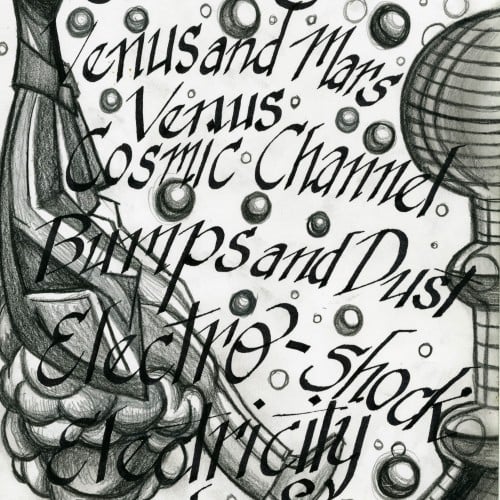 Venus and Mars
Venus
Cosmic Channel
Bumps and Dust
Electro-Shock
Electricity